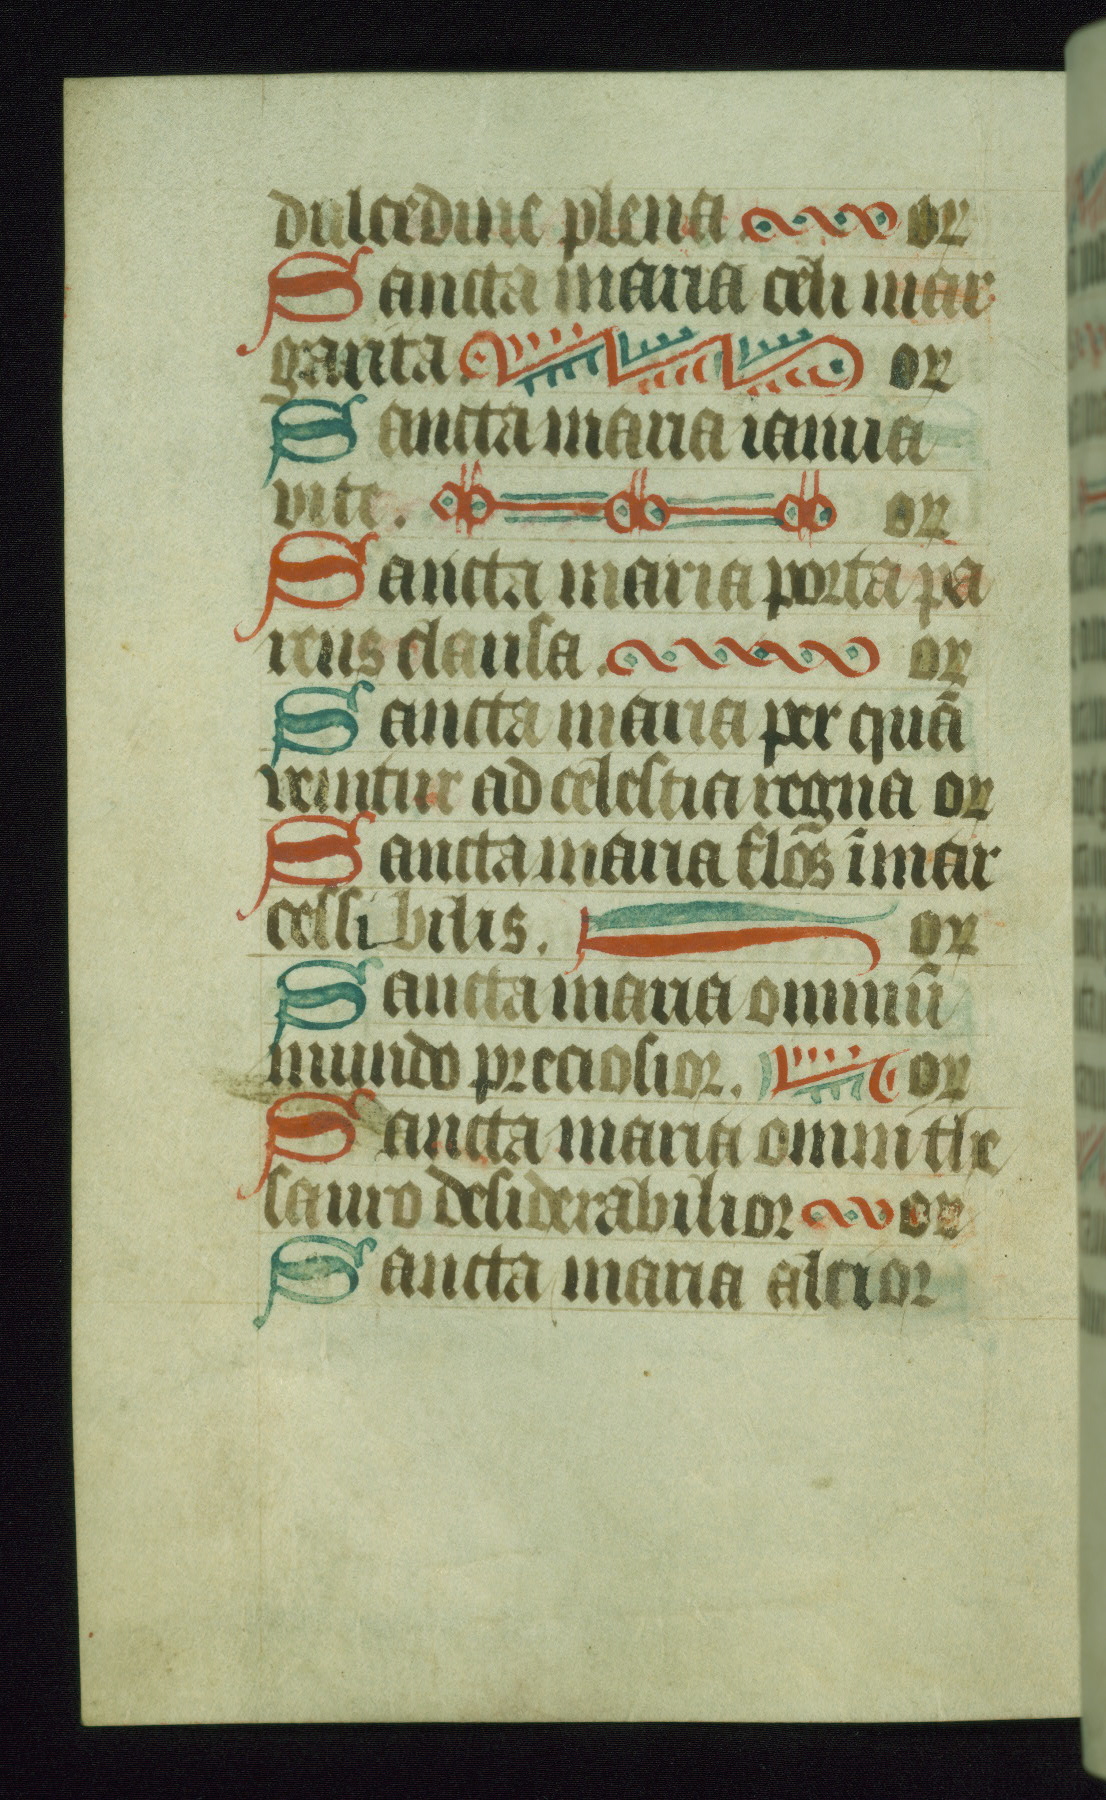 dulcedine plena. or
Sancta maria celi mar
garita. or
Sancta maria ianua
vite. or
Sancta maria porta pa
rens clausa. or
Sancta maria per quā
venitur ad celestia regna or
Sancta maria flos īmar
cessibilis. or
Sancta maria omniū
mundo preciosior. or
Sancta maria omni the
sauro desiderabilior or
Sancta maria alcior